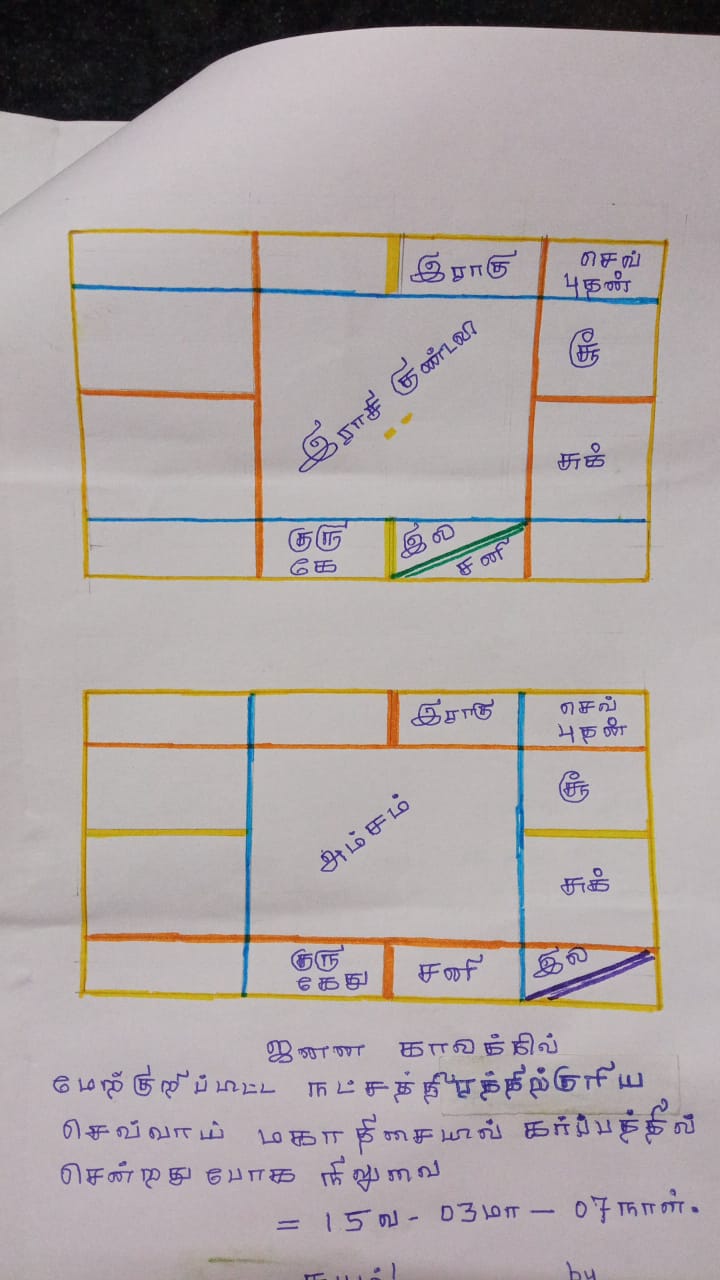 இராகு
செவ்
புதன்
சூ
இராசி குண்டலி
சுக்
குரு
கே
இல
சனி
இராகு
செவ்
புதன்
சூ
அம்சம்
சுக்
குரு
கேது
சனி
இல
ஜனன காலத்தில்
மேற்குறிப்பிட்ட நட்சத்திரத்திற்குரிய
செவ்வாய் மகாதிசையில் கர்ப்பத்தில்
சென்றது போக நிலுவை
= 15வ - 03மா - 07நாள்.
by